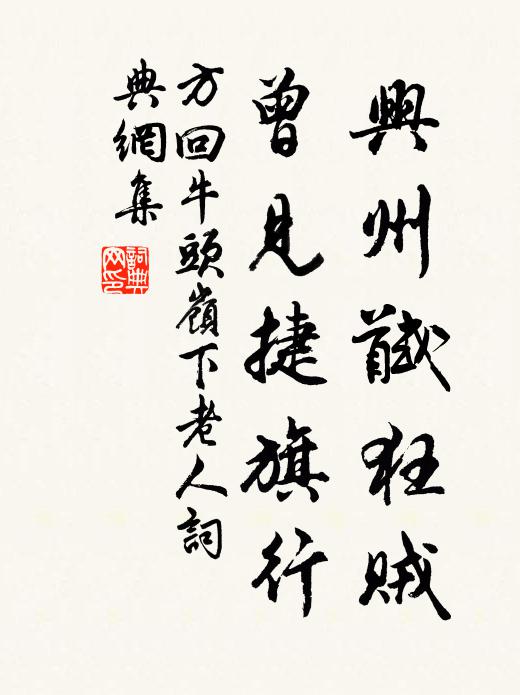 興州馘狂賊
曾見捷旗行
方回牛頭嶺下老人詞
典網集
詞典
网印